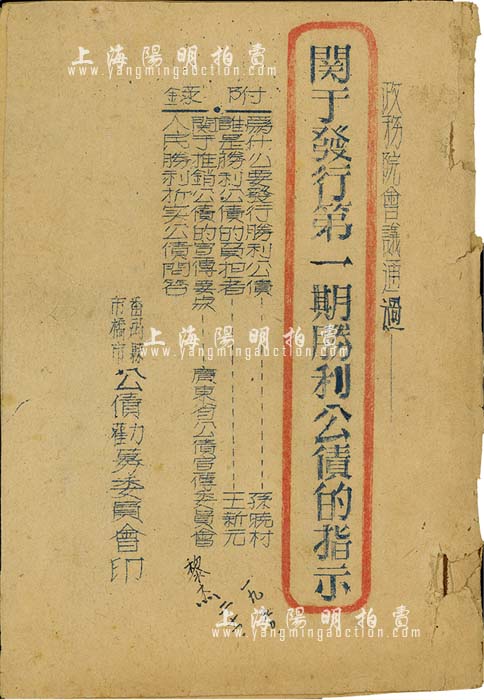 政務院會議通過
関于發行第一期勝利公債的指示
附錄
為什么要發行勝利公債 孫曉村
誰是勝利公債的負担者 王新元
関于推銷公債的宣傳要点 廣東省公債宣傳委員會
人民勝利折实公債問答
番禺縣市橋市公債勸募委員會印
黎杰
上海陽明拍賣
www.yangmingauction.com
上海陽明拍賣
www.yangmingauction.com
上海陽明拍賣
www.yangmingauction.com